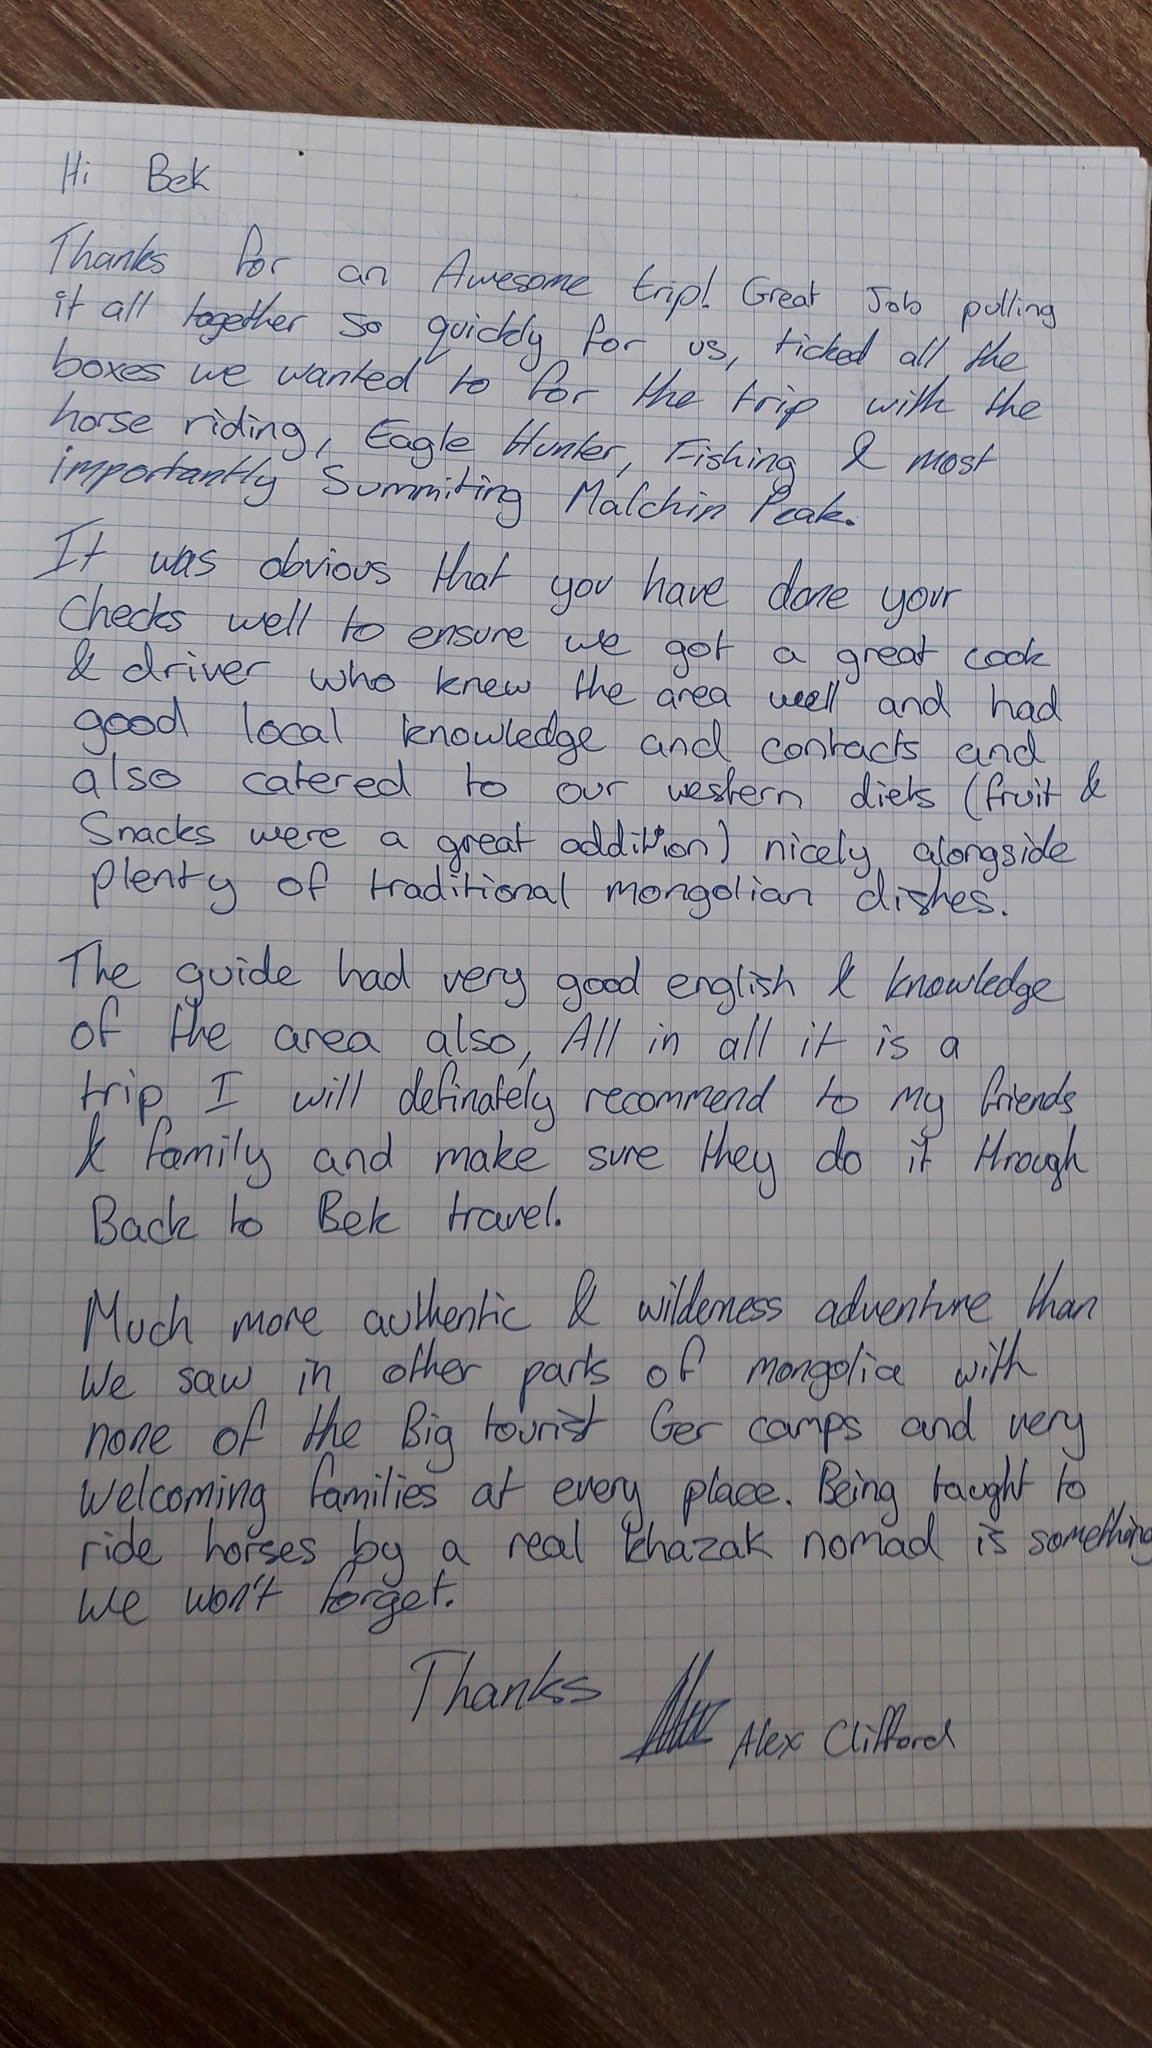 Hi Bek
Thanks for an Awesome trip! Great Job pulling
it all together so quickly for us, ticked all the
boxes we wanted to for the trip with the
horse riding, Eagle Hunter, Fishing & most
importantly Summiting Malchin Peak.
It was obvious that you have done your
Checks well to ensure we got a great cook
& driver who knew the area well and had
good local knowledge and contacts and
also catered to our western diets (fruit &
Snacks were a great addition) nicely alongside
plenty of traditional mongolian dishes.
The guide had very good english & knowledge
of the area also, All in all it is a
trip I will definately recommend to my friends
& family and make sure they do it through
Back to Bek travel.
Much more authentic & wilderness adventure than
we saw in other parts of mongolia with
none of the Big tourist Ger camps and very
welcoming families at every place. Being taught to
ride horses by a real khazak nomad is something
we won't forget.
Thanks
Alex Clifford